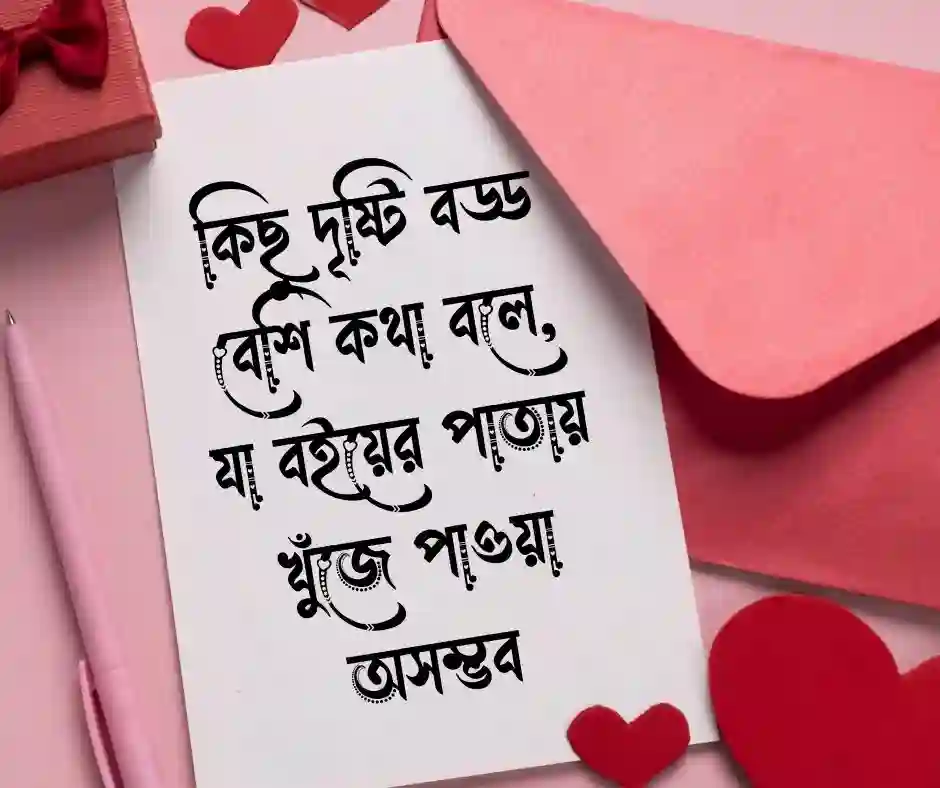 কিছু দৃষ্টি বড্ড
বেশি কথা বলে,
যা বইয়ের পাতায়
খুঁজে পাওয়া
অসম্ভব